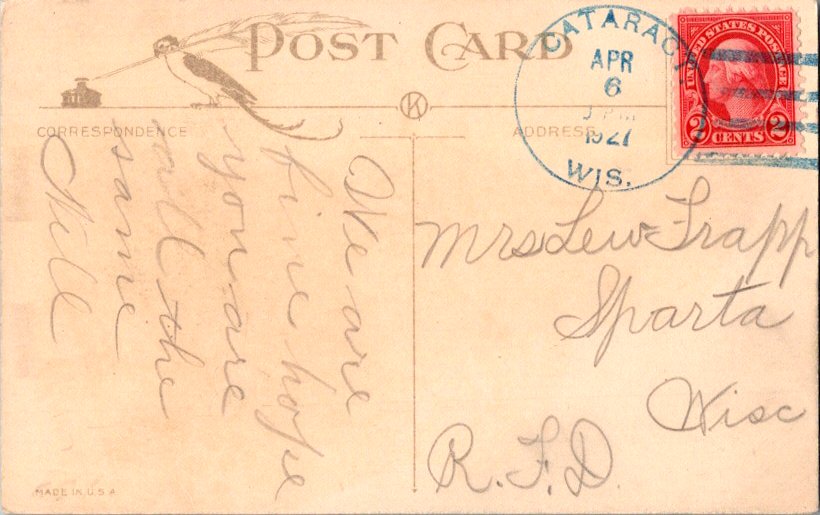 POST CARD
CORRESPONDENCE
ADDRESS
K
CATARACT
APR
6
1927
WIS.
UNITED STATES POSTAGE
2 CENTS 2
We are
fine hope
you are
all the
same
Mrs Lew Trapp
Sparta
Wisc
R.F.D.
MADE IN U.S.A.